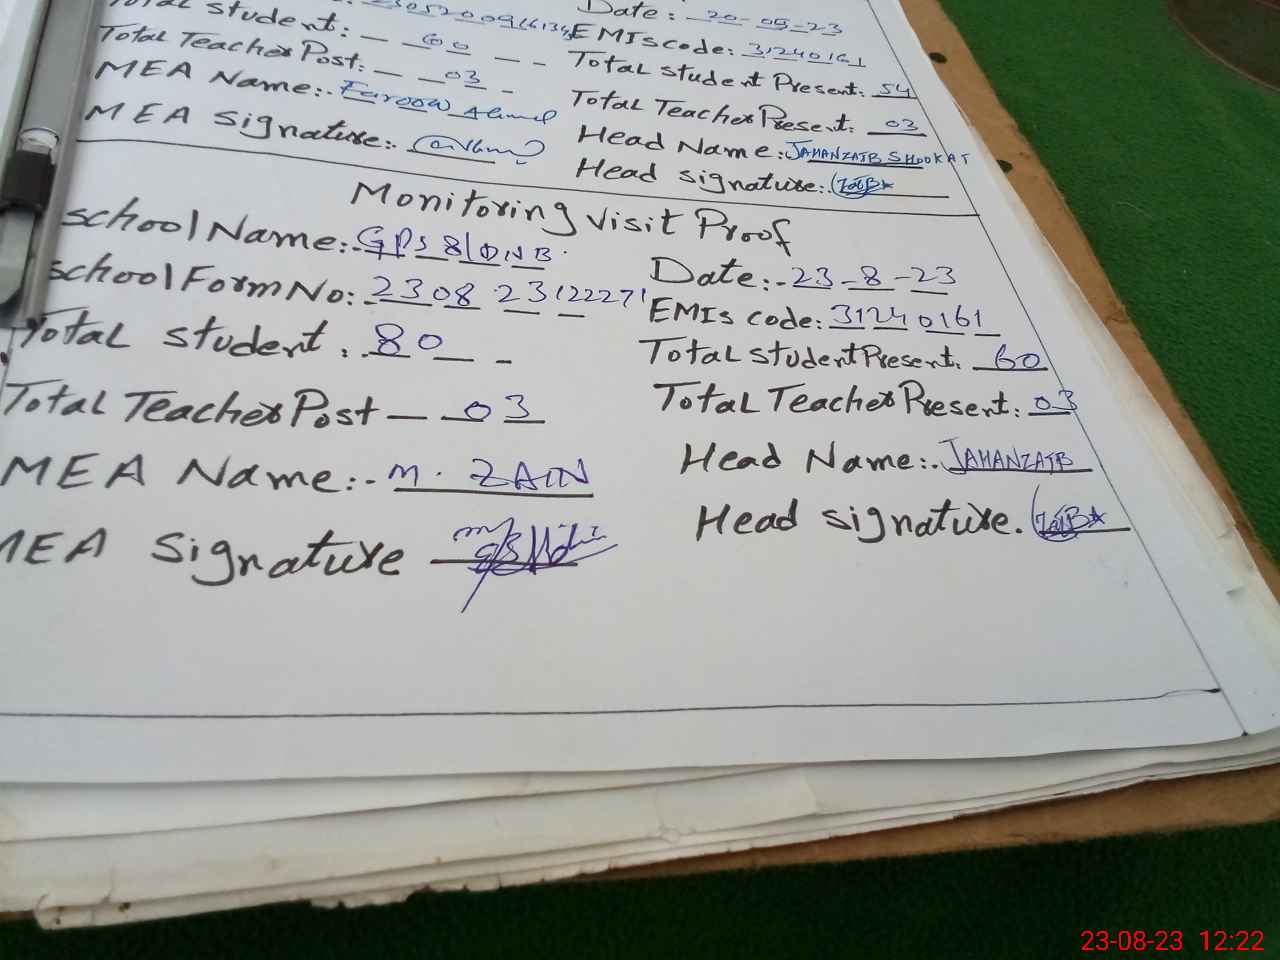 Date:- 20-05-23
Total student: - 60 - -
EMIS code: 31240161
Total Teacher Post: - - 03 -
Total student Present: 54
MEA Name:- Farooq Ahmed
Total Teacher Present: 03
MEA Signature:-
Head Name:- JAHANZAIB SHOOKAT
Head signature:- ZaiB
Monitoring Visit Proof
school Name:- GPS 81DNB.
Date:- 23-8-23
school Form No: 230823122271
EMIS code: 31240161
Total student :. 80 - -
Total student Present. 60
Total Teacher Post - - 03
Total Teacher Present: 03
MEA Name:-. M. ZAIN
Head Name:-. JAHANZAIB
MEA Signature
Head signature. ZaiB
23-08-23 12:22